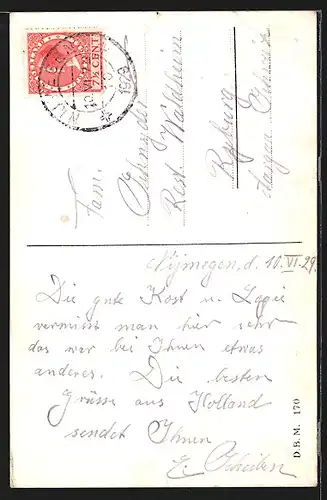 7½ CENT
10.VI 22
1929
Fam.
Rest. Waldheim
Ryburg
Aargau Schweiz
Nijmegen, d. 10.VI.29.
Die gute Kost u. Logie
vermisst man hier sehr
das war bei Ihnen etwas
anderes. Die besten
Grüsse aus Holland
sendet Ihnen
E.
D.B.M. 170